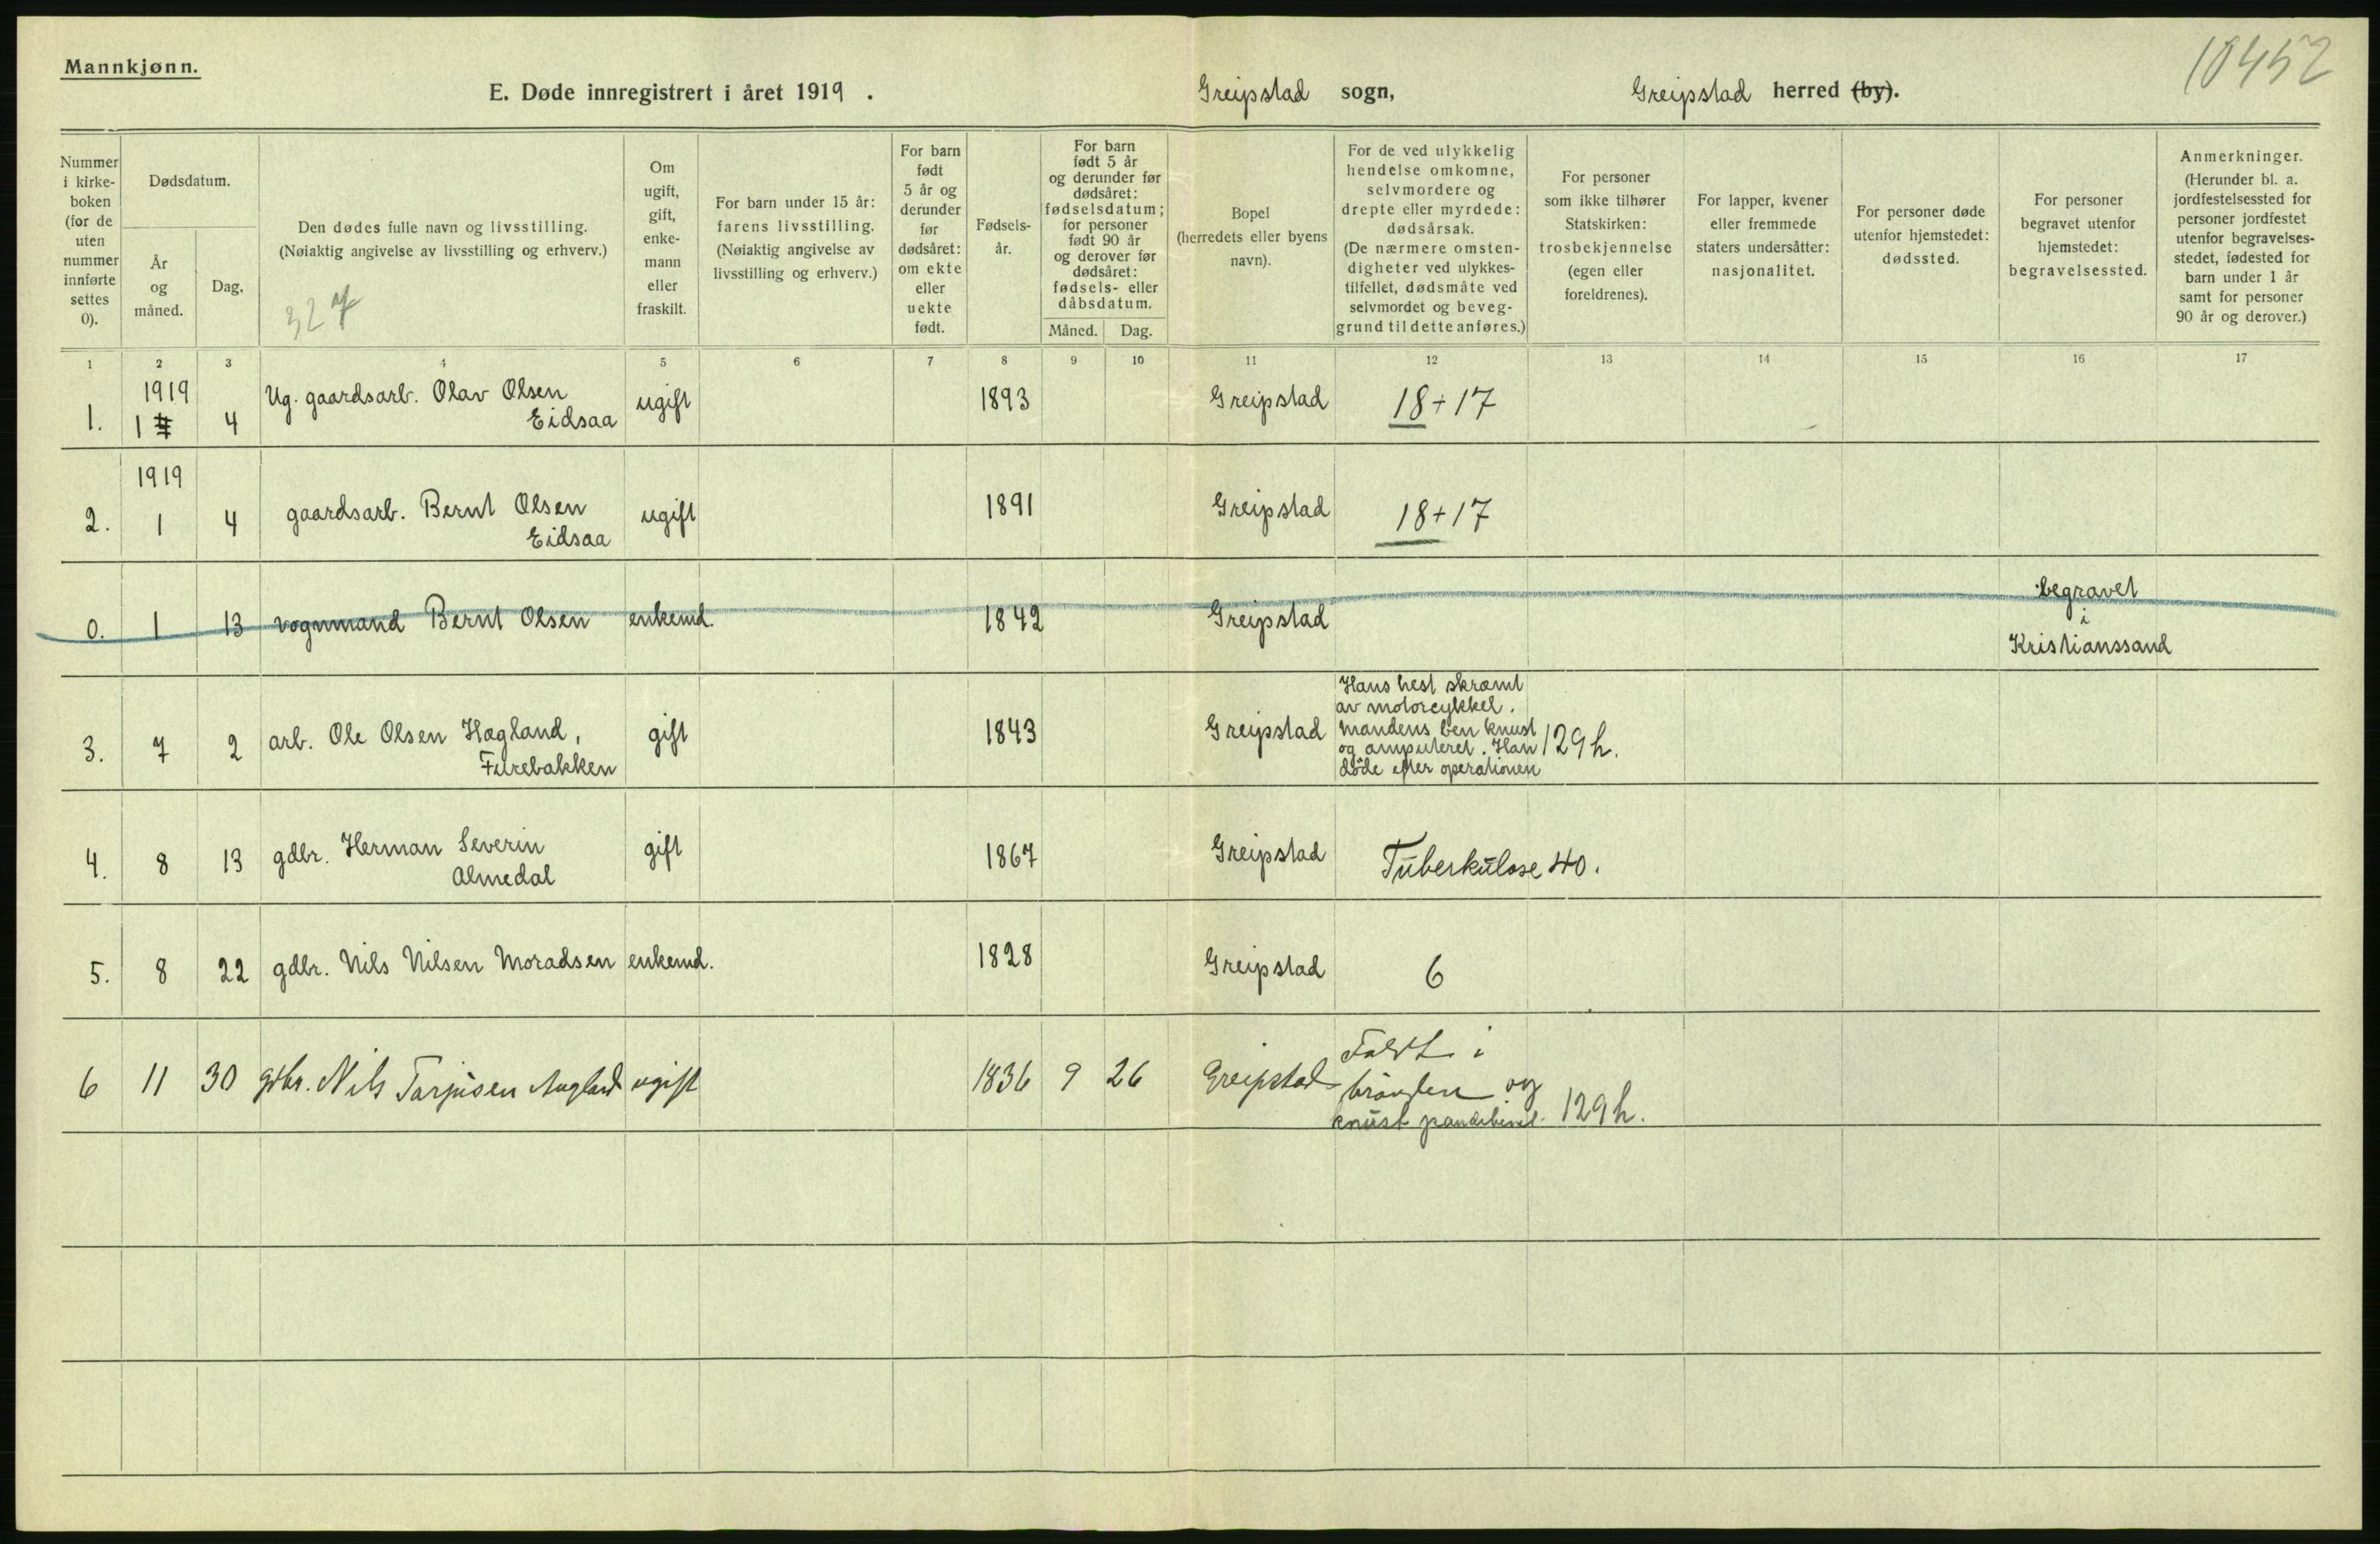 Mannkjønn.
10452
E. Døde innregistrert i året 1919 . Greipstad sogn, Greipstad herred (by).
Nummer i kirke- boken (for de uten nummer innførte settes 0).
Dødsdatum.
År og måned.
Dag.
Den dødes fulle navn og livsstilling.
(Nøiaktig angivelse av livsstilling og erhverv.)
327
Om ugift, gift, enke- mann eller fraskilt.
For barn under 15 år: farens livsstilling. (Nøiaktig angivelse av livsstilling og erhverv.)
For barn født 5 år og derunder før dødsåret: om ekte eller uekte født.
Fødsels- år.
For barn født 5 år og derunder før dødsåret: fødselsdatum; for personer født 90 år og derover før dødsåret: fødsels- eller dåbsdatum.
Måned. Dag.
Bopel (herredets eller byens navn).
For de ved ulykkelig hendelse omkomne, selvmordere og drepte eller myrdede: dødsårsak. (De nærmere omsten- digheter ved ulykkes- tilfellet, dødsmåte ved selvmordet og beveg- grund til dette anføres.)
For personer som ikke tilhører Statskirken: trosbekjennelse (egen eller foreldrenes).
For lapper, kvener eller fremmede staters undersåtter: nasjonalitet.
For personer døde utenfor hjemstedet: dødssted.
For personer begravet utenfor hjemstedet: begravelsessted.
Anmerkninger. (Herunder bl. a. jordfestelsessted for personer jordfestet utenfor begravelses- stedet, fødested for barn under 1 år samt for personer 90 år og derover.)
1 2 3 4 5 6 7 8 9 10 11 12 13 14 15 16 17
1919
1. 1 4 Ug. gaardsarb. Olav Olsen Eidsaa ugift 1893 Greipstad 18+17
1919
2. 1 4 gaardsarb. Bernt Olsen Eidsaa ugift 1891 Greipstad 18+17
0. 1 13 vognmand Bernt Olsen enkemd. 1842 Greipstad begravet i Kristianssand
3. 7 2 arb. Ole Olsen Hagland, Furebakken gift 1843 Greipstad
Hans hest skræmt
av motorcykkel.
mandens ben knust
og amputeret. Han 129h.
døde efter operationen
4. 8 13 gdbr. Herman Severin Almedal gift 1867 Greipstad Tuberkulose 40.
5. 8 22 gdbr. Nils Nilsen Moradsen enkemd. 1828 Greipstad 6
6 11 30 gdbr. Nils Tarjusen Augland ugift 1836 9 26 Greipstad
Faldt i
brønden og
knust pandebenet. 129h.